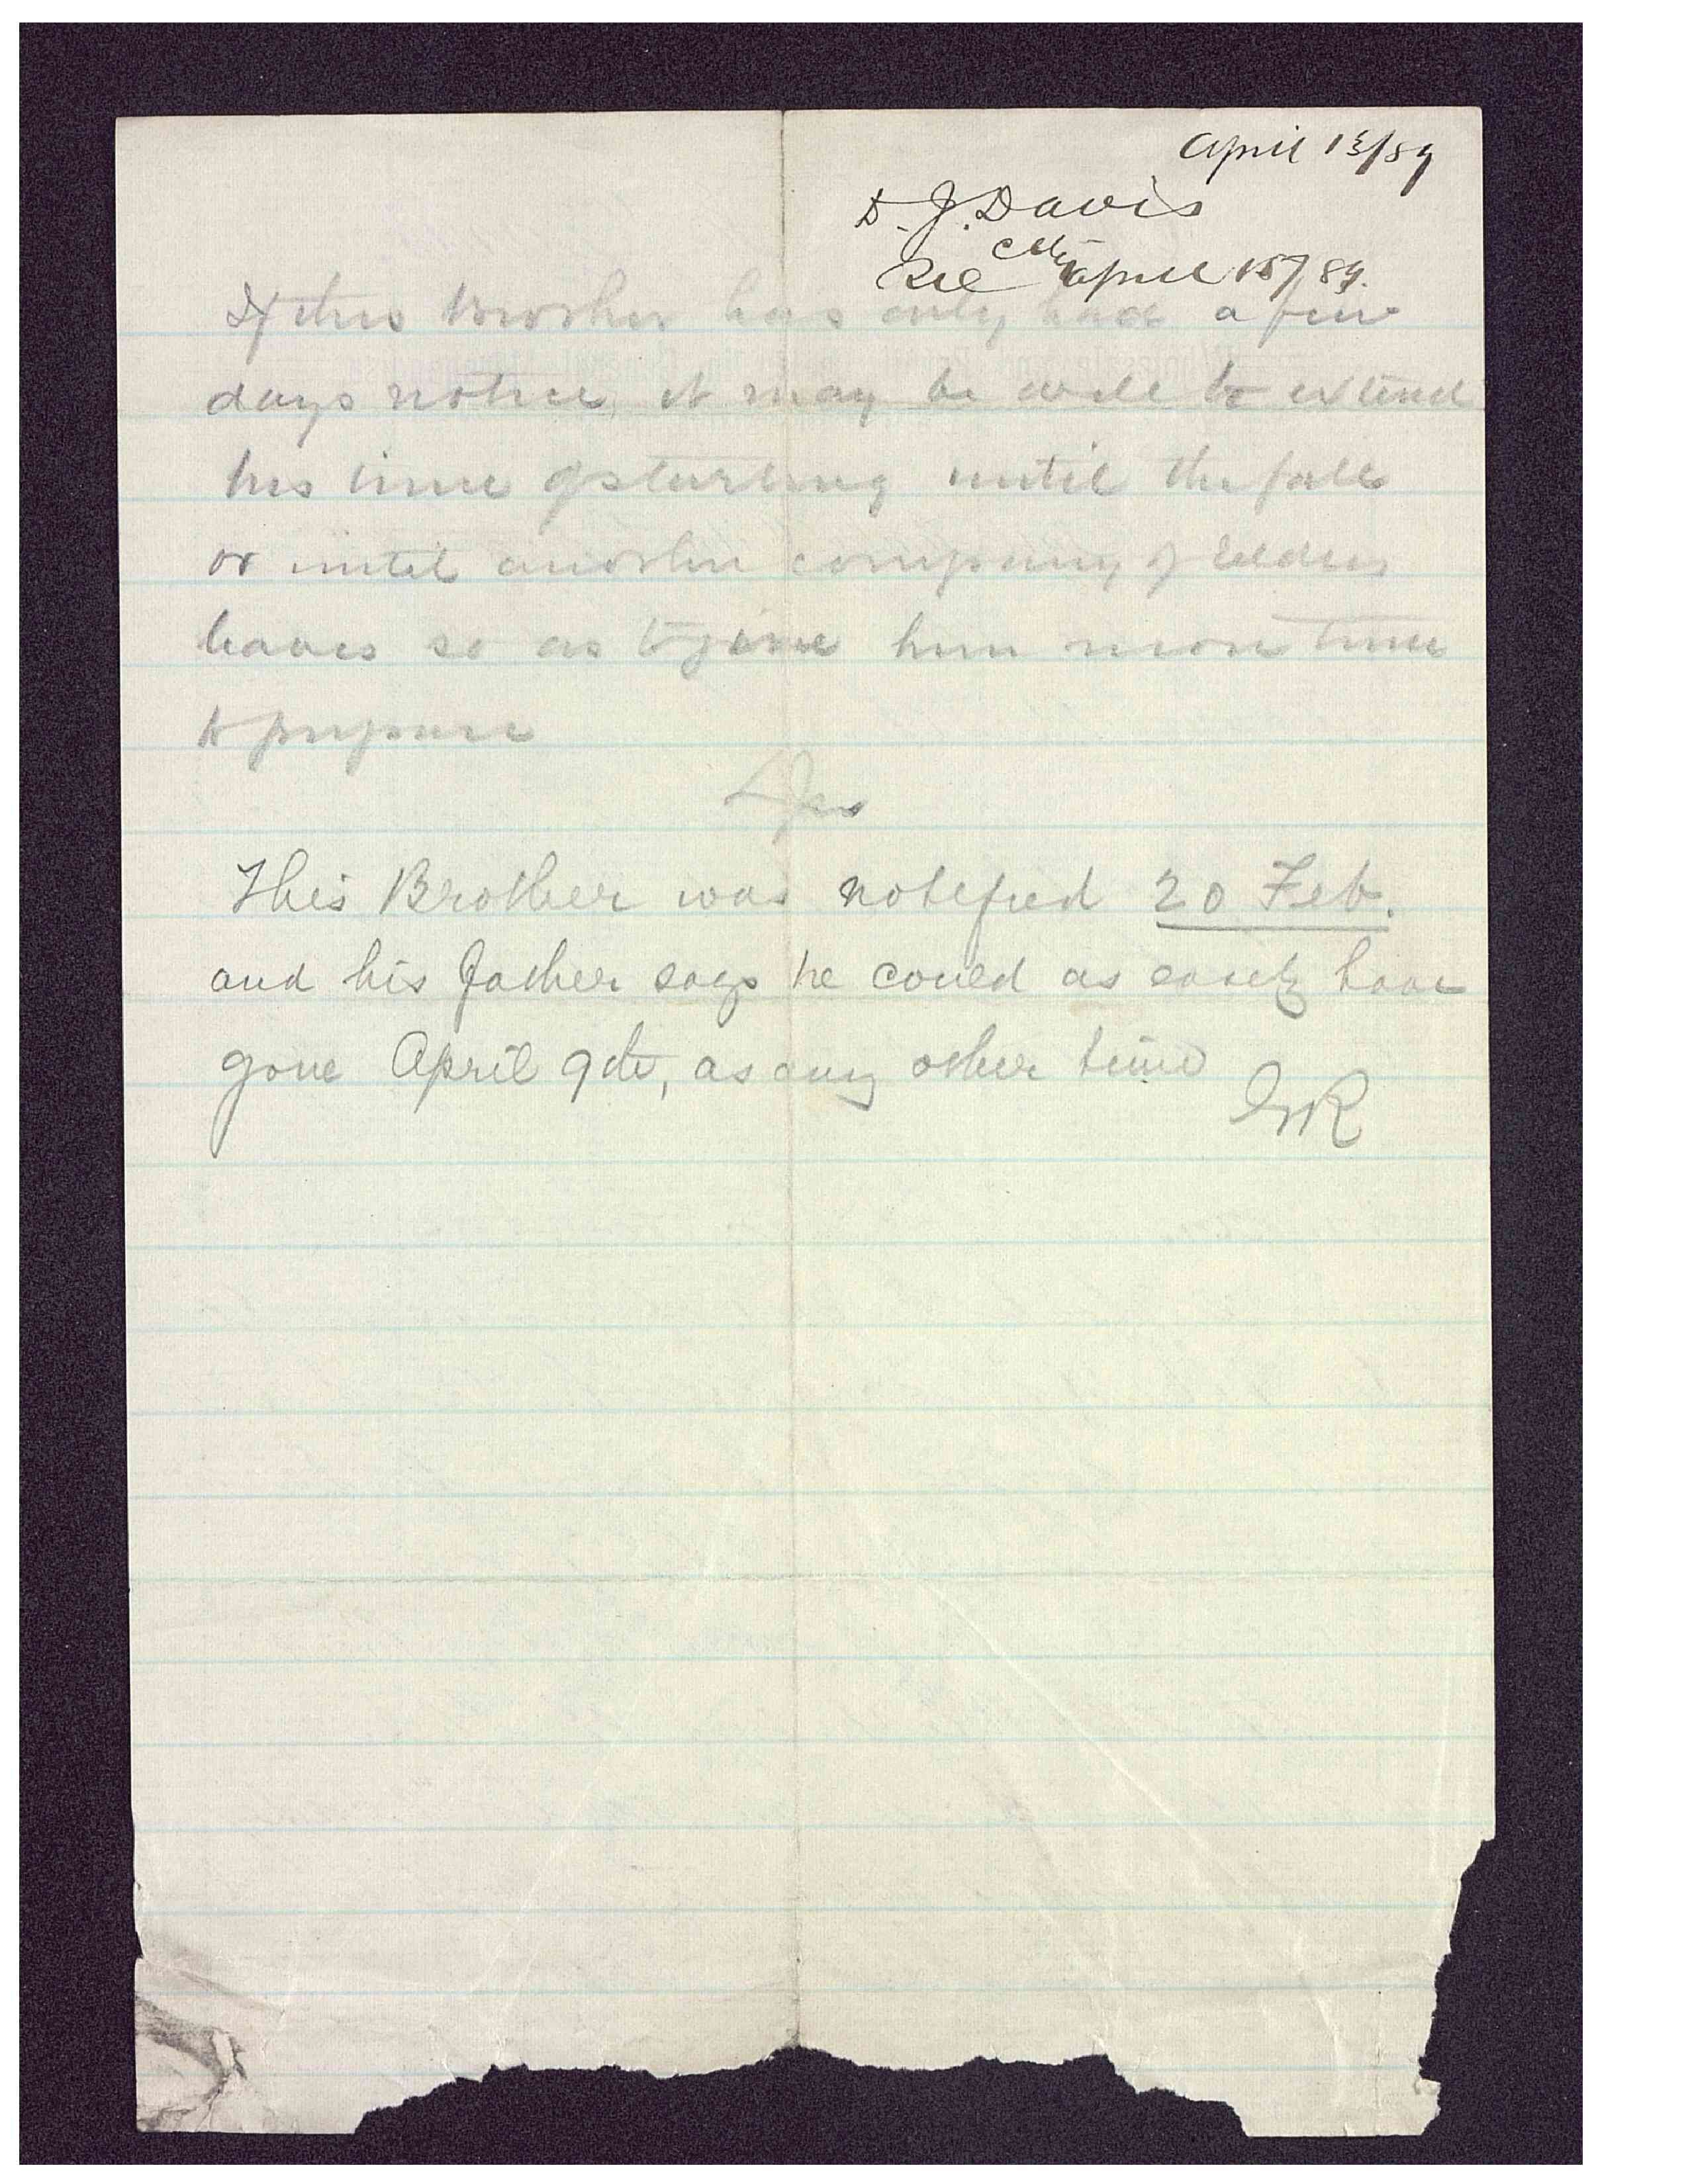 April 13/89
D. J. Davis
City
Rec April 15/89.
If this Brother has only had a few
days notice, it may be well to extend
his time of starting until the fall
or until another company of Elders
leaves so as to give him more time
to prepare
This Brother was notified 20 Feb.
and his father says he could as easily have
gone April 9th, as any other time
GR